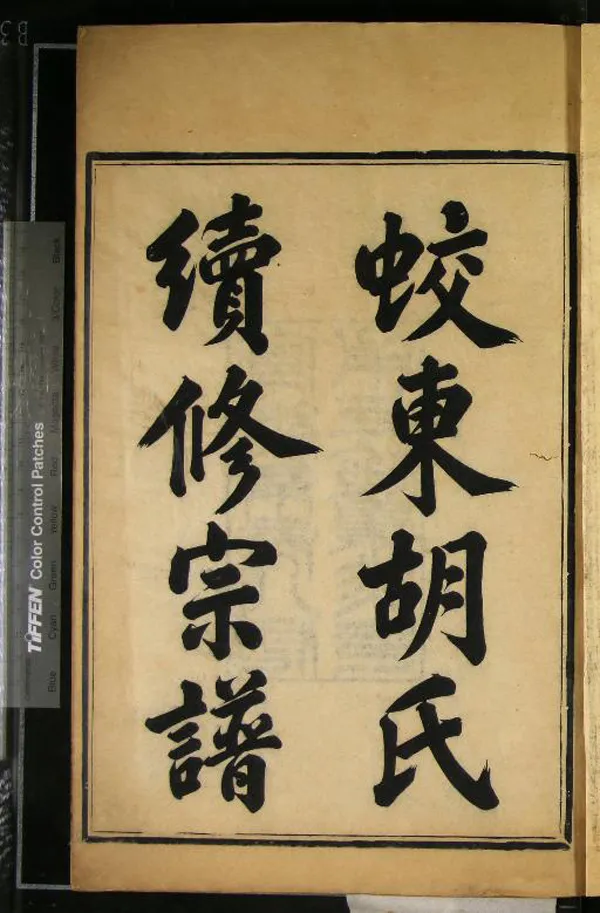 蛟東胡氏
續修宗譜
TIFFEN Color Control Patches
Blue Cyan Green Yellow Red Magenta White 3/Color Black